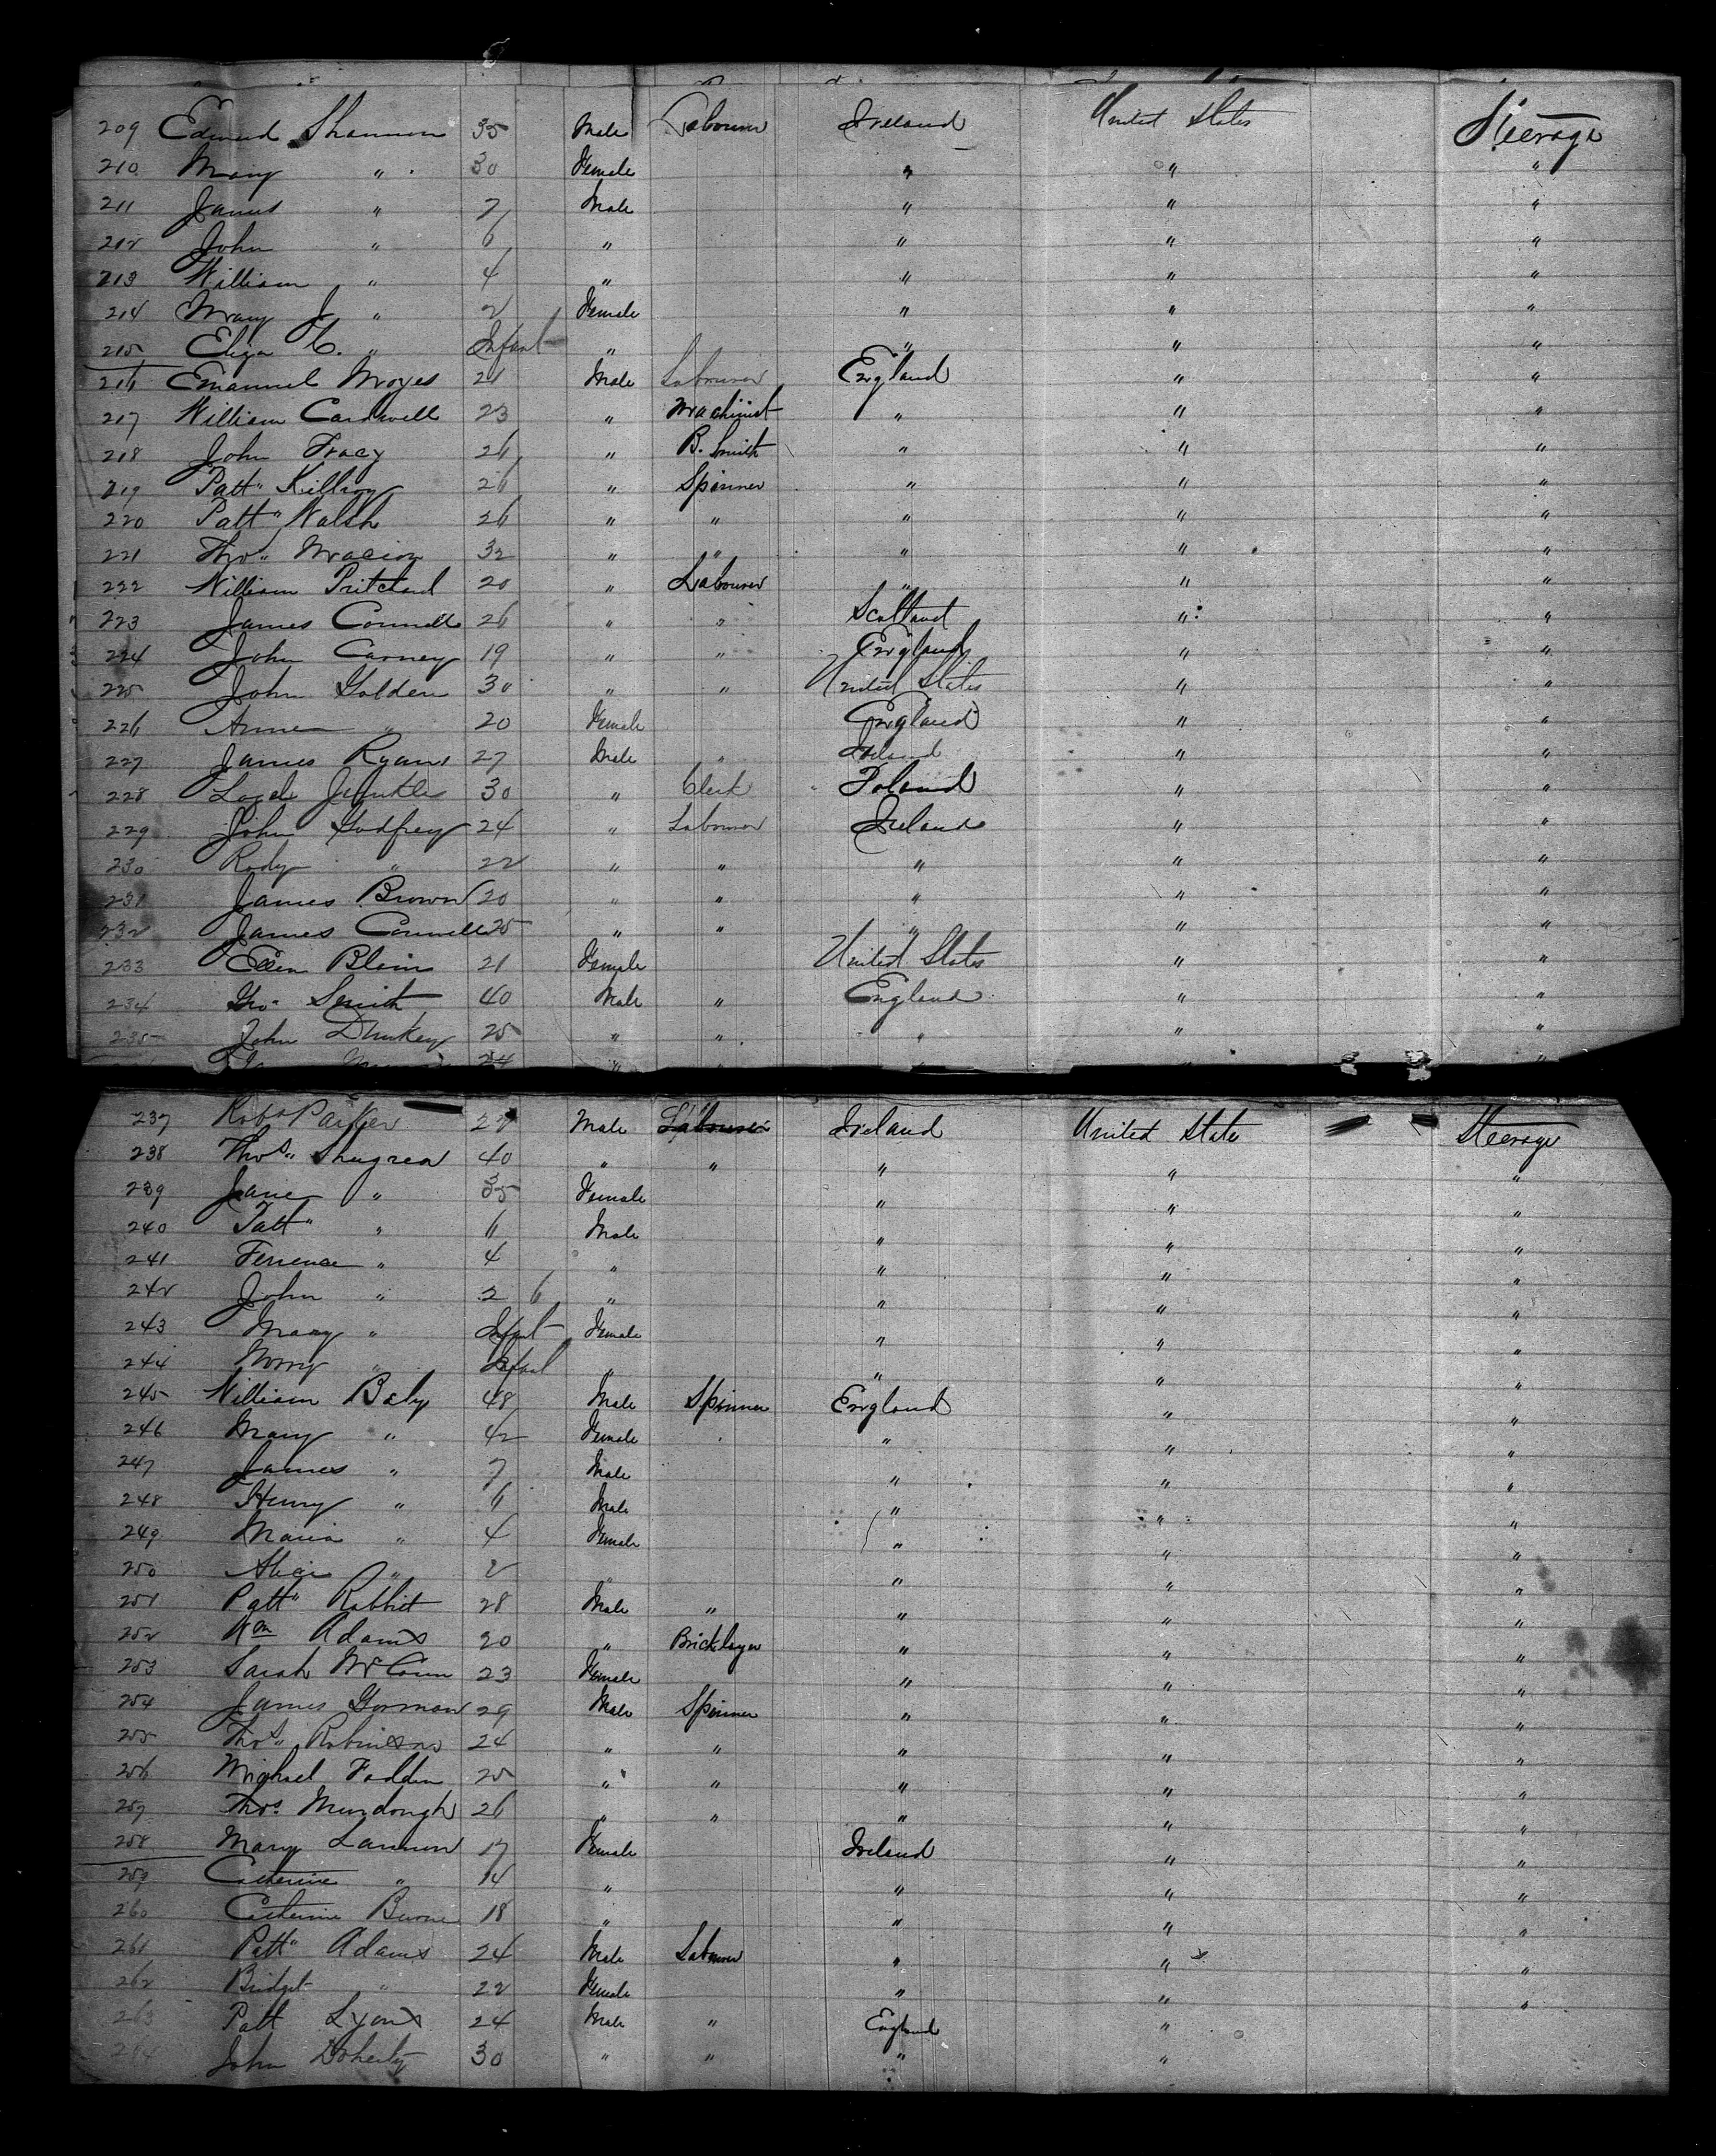 209 Edward Shannon 35 Male Labourer Ireland United States Steerage
210 Mary " 30 Female " " "
211 James " 7 Male " " "
212 John " 6 " " " "
213 William " 4 " " " "
214 Mary J " 2 Female " " "
215 Eliza C. " Infant " " " "
216 Emanuel Moyes 21 Male Labourer England " "
217 William Cardwell 23 " Machinist " " "
218 John Tracy 26 " B. Smith " " "
219 Patt" Killroy 26 " Spinner " " "
220 Patt" Walsh 26 " " " " "
221 Tho" 32 " " " " "
222 William Pritchard 20 " Labourer " " "
223 James Connell 26 " " Scotland " "
224 John Carney 19 " " England " "
225 John Golden 30 " " United States " "
226 Anne " 20 Female England " "
227 James Ryan 27 Male " Ireland " "
228 30 " Clerk Poland " "
229 John Godfrey 24 " Labourer Ireland " "
230 Rody " 22 " " " " "
231 James Brown 20 " " " " "
232 James Connell 25 " " " " "
233 Ellen Blain 21 Female United States " "
234 Tho" Smith 40 Male " England " "
235 John 25 " " " " "
24 " " "
237 Robt Parker 27 Male Labourer Ireland United State Steerage
238 Thos" Shugrea 40 " " " " "
239 Jane " 35 Female " " "
240 Patt" " 6 Male " " "
241 Terrence " 4 " " " "
242 John " 2 6 " " " "
243 Mary " Infant Female " " "
244 Norry " Infant " " " "
245 William Baly 48 Male Spinner England " "
246 Mary " 42 Female " " "
247 James " 7 Male " " "
248 Henry " 6 Male " " "
249 Maria " 4 Female " " "
250 Alice " 2 " " " "
251 Patt" Rabbit 28 Male " " " "
252 Wm Adams 20 " Bricklayer " " "
253 Sarah McCann 23 Female " " "
254 James Gorman 29 Male Spinner " " "
255 Thos" Robinson 24 " " " " "
256 Michael Fadden 25 " " " " "
257 Thos. Murdough 26 " " " " "
258 Mary Lannon 17 Female Ireland " "
259 Catherine " 14 " " " "
260 Catherine Burne 18 " " " "
261 Patt" Adams 24 Male Labourer " " "
262 Bridget " 22 Female " " "
263 Patt Lyons 24 Male " England "
264 John Doherty 30 " " " "